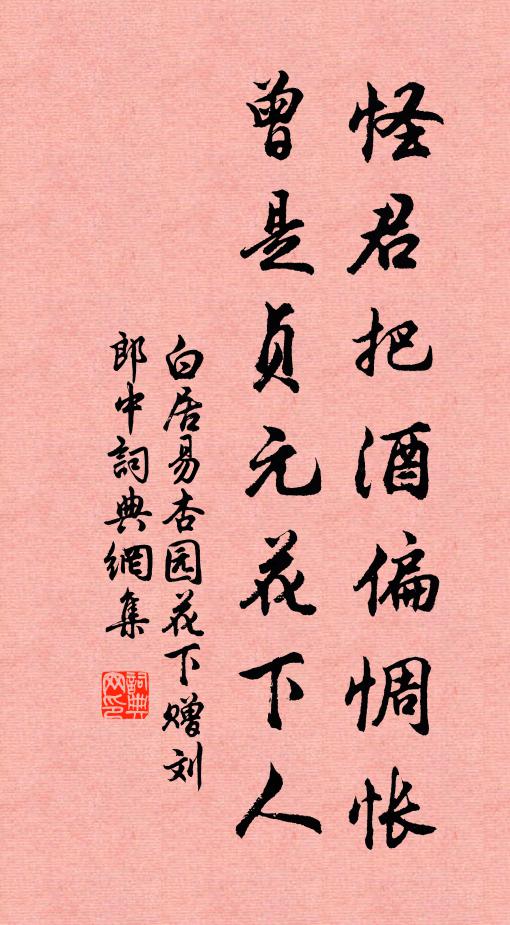 怪君把酒偏惆怅
曾是贞元花下人
白居易杏园花下赠刘
郎中詞典網集
詞典網印